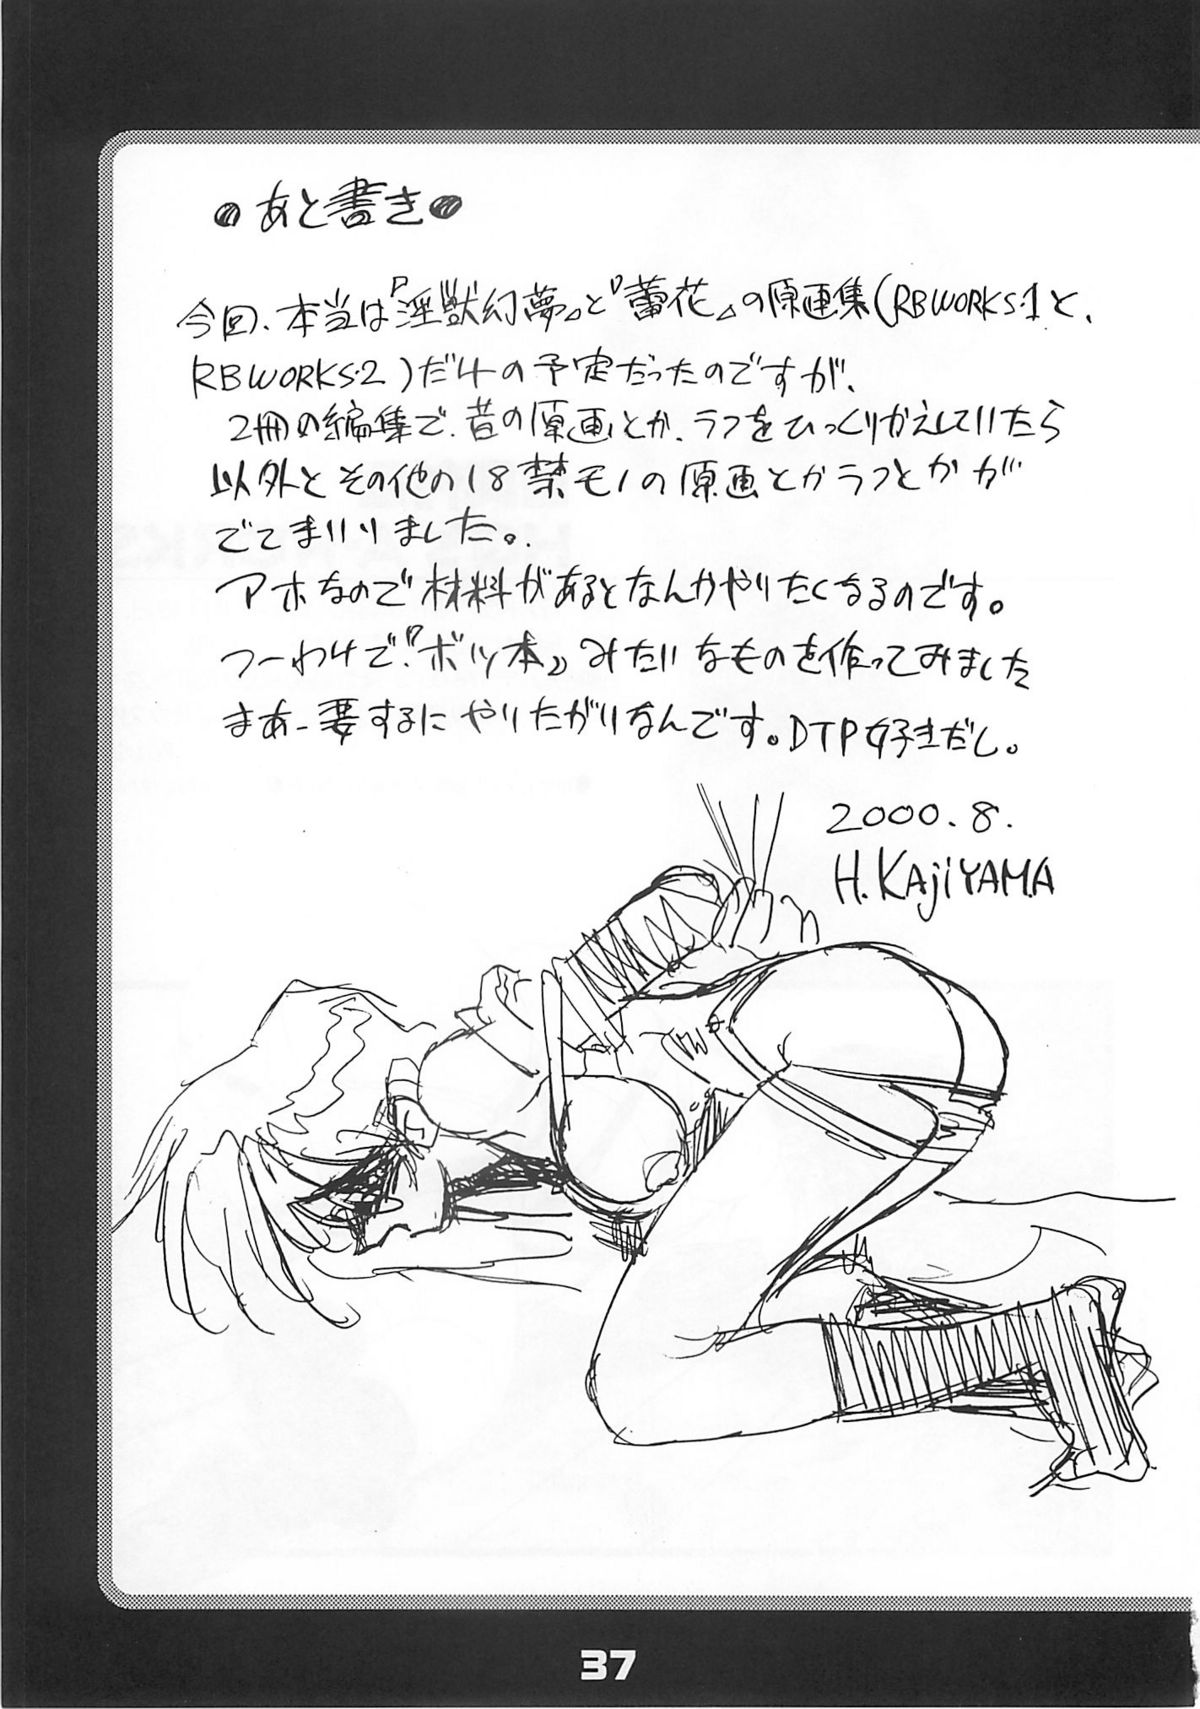 ●あと書き●
今回、本当は『淫獣幻夢』と『蕾花』の原画集(RBWORKS・1と、
RBWORKS・2)だけの予定だったのですが、
2冊の編集で、昔の原画とか、ラフをひっくりかえしていたら
以外とその他の18禁モノの原画とかラフとかが
でてまいりました。
アホなので材料があるとなんかやりたくなるのです。
つーわけで『ボツ本』みたいなものを作ってみました
まあ-要するにやりたがりなんです。DTP好きだし。
2000.8.
H.KAjiYAMA
37